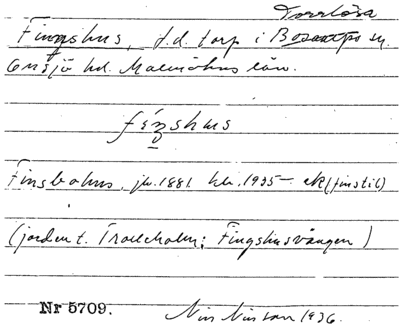 Torrlösa
Fingshus, f.d. torp i Bosarps sn.
Onsjö hd. Malmöhus län.
féŋshus
Finsbohus, jb. 1881 kb. 1935- ek (finstil)
(jorden t. Trolleholm: Fingshusvången)
Nr 5709.
Nils Nilsson 1936.